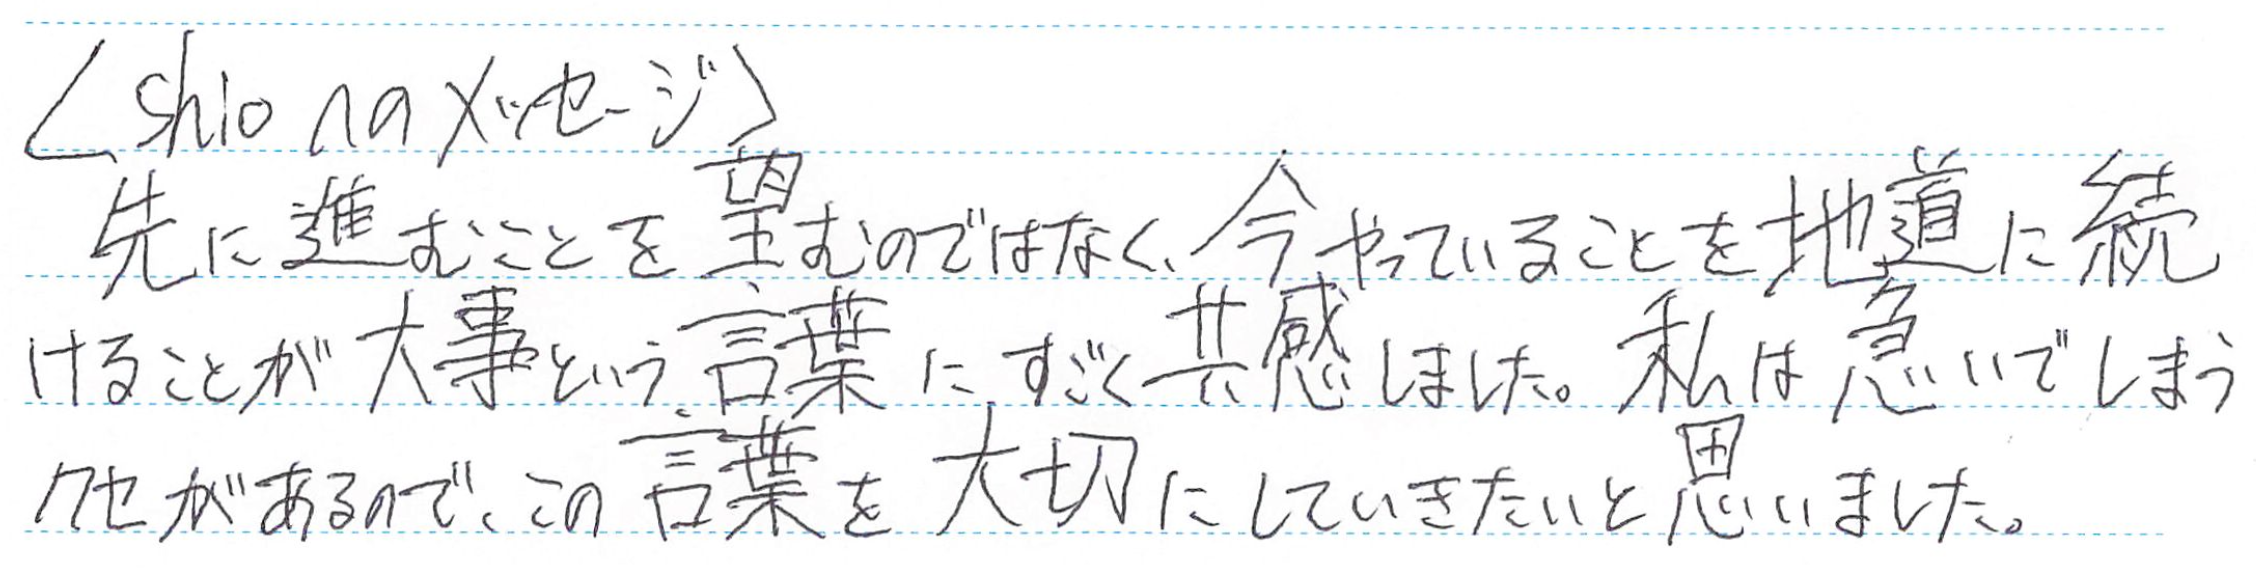 〈shioへのメッセージ〉
先に進むことを望むのではなく、今やっていることを地道に続
けることが大事という言葉にすごく共感しました。私は急いでしまう
クセがあるので、この言葉を大切にしていきたいと思いました。